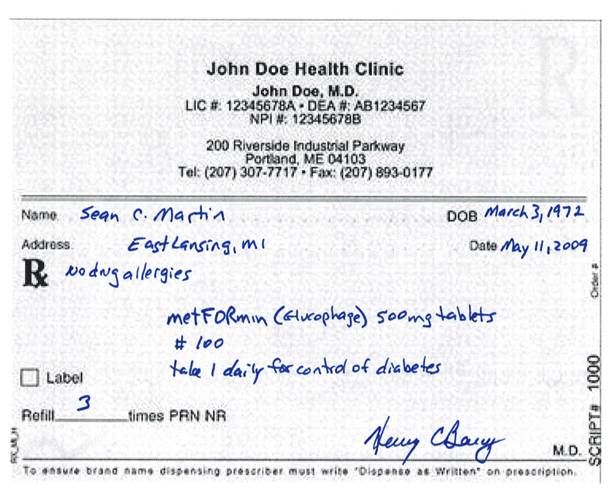 John Doe Health Clinic
John Doe, M.D.
LIC #: 12345678A • DEA #: AB1234567
NPI #: 12345678B
200 Riverside Industrial Parkway
Portland, ME 04103
Tel: (207) 307-7717 • Fax: (207) 893-0177
Name Sean C. Martin DOB March 3, 1972
Address East Lansing, MI Date May 11, 2009
Rx No drug allergies
metFORmin (Glucophage) 500mg tablets
# 100
take 1 daily for control of diabetes
Label
Refill 3 times PRN NR
Henry M.D.
To ensure brand name dispensing prescriber must write "Dispense as Written" on prescription.
Order #
SCRIPT# 1000